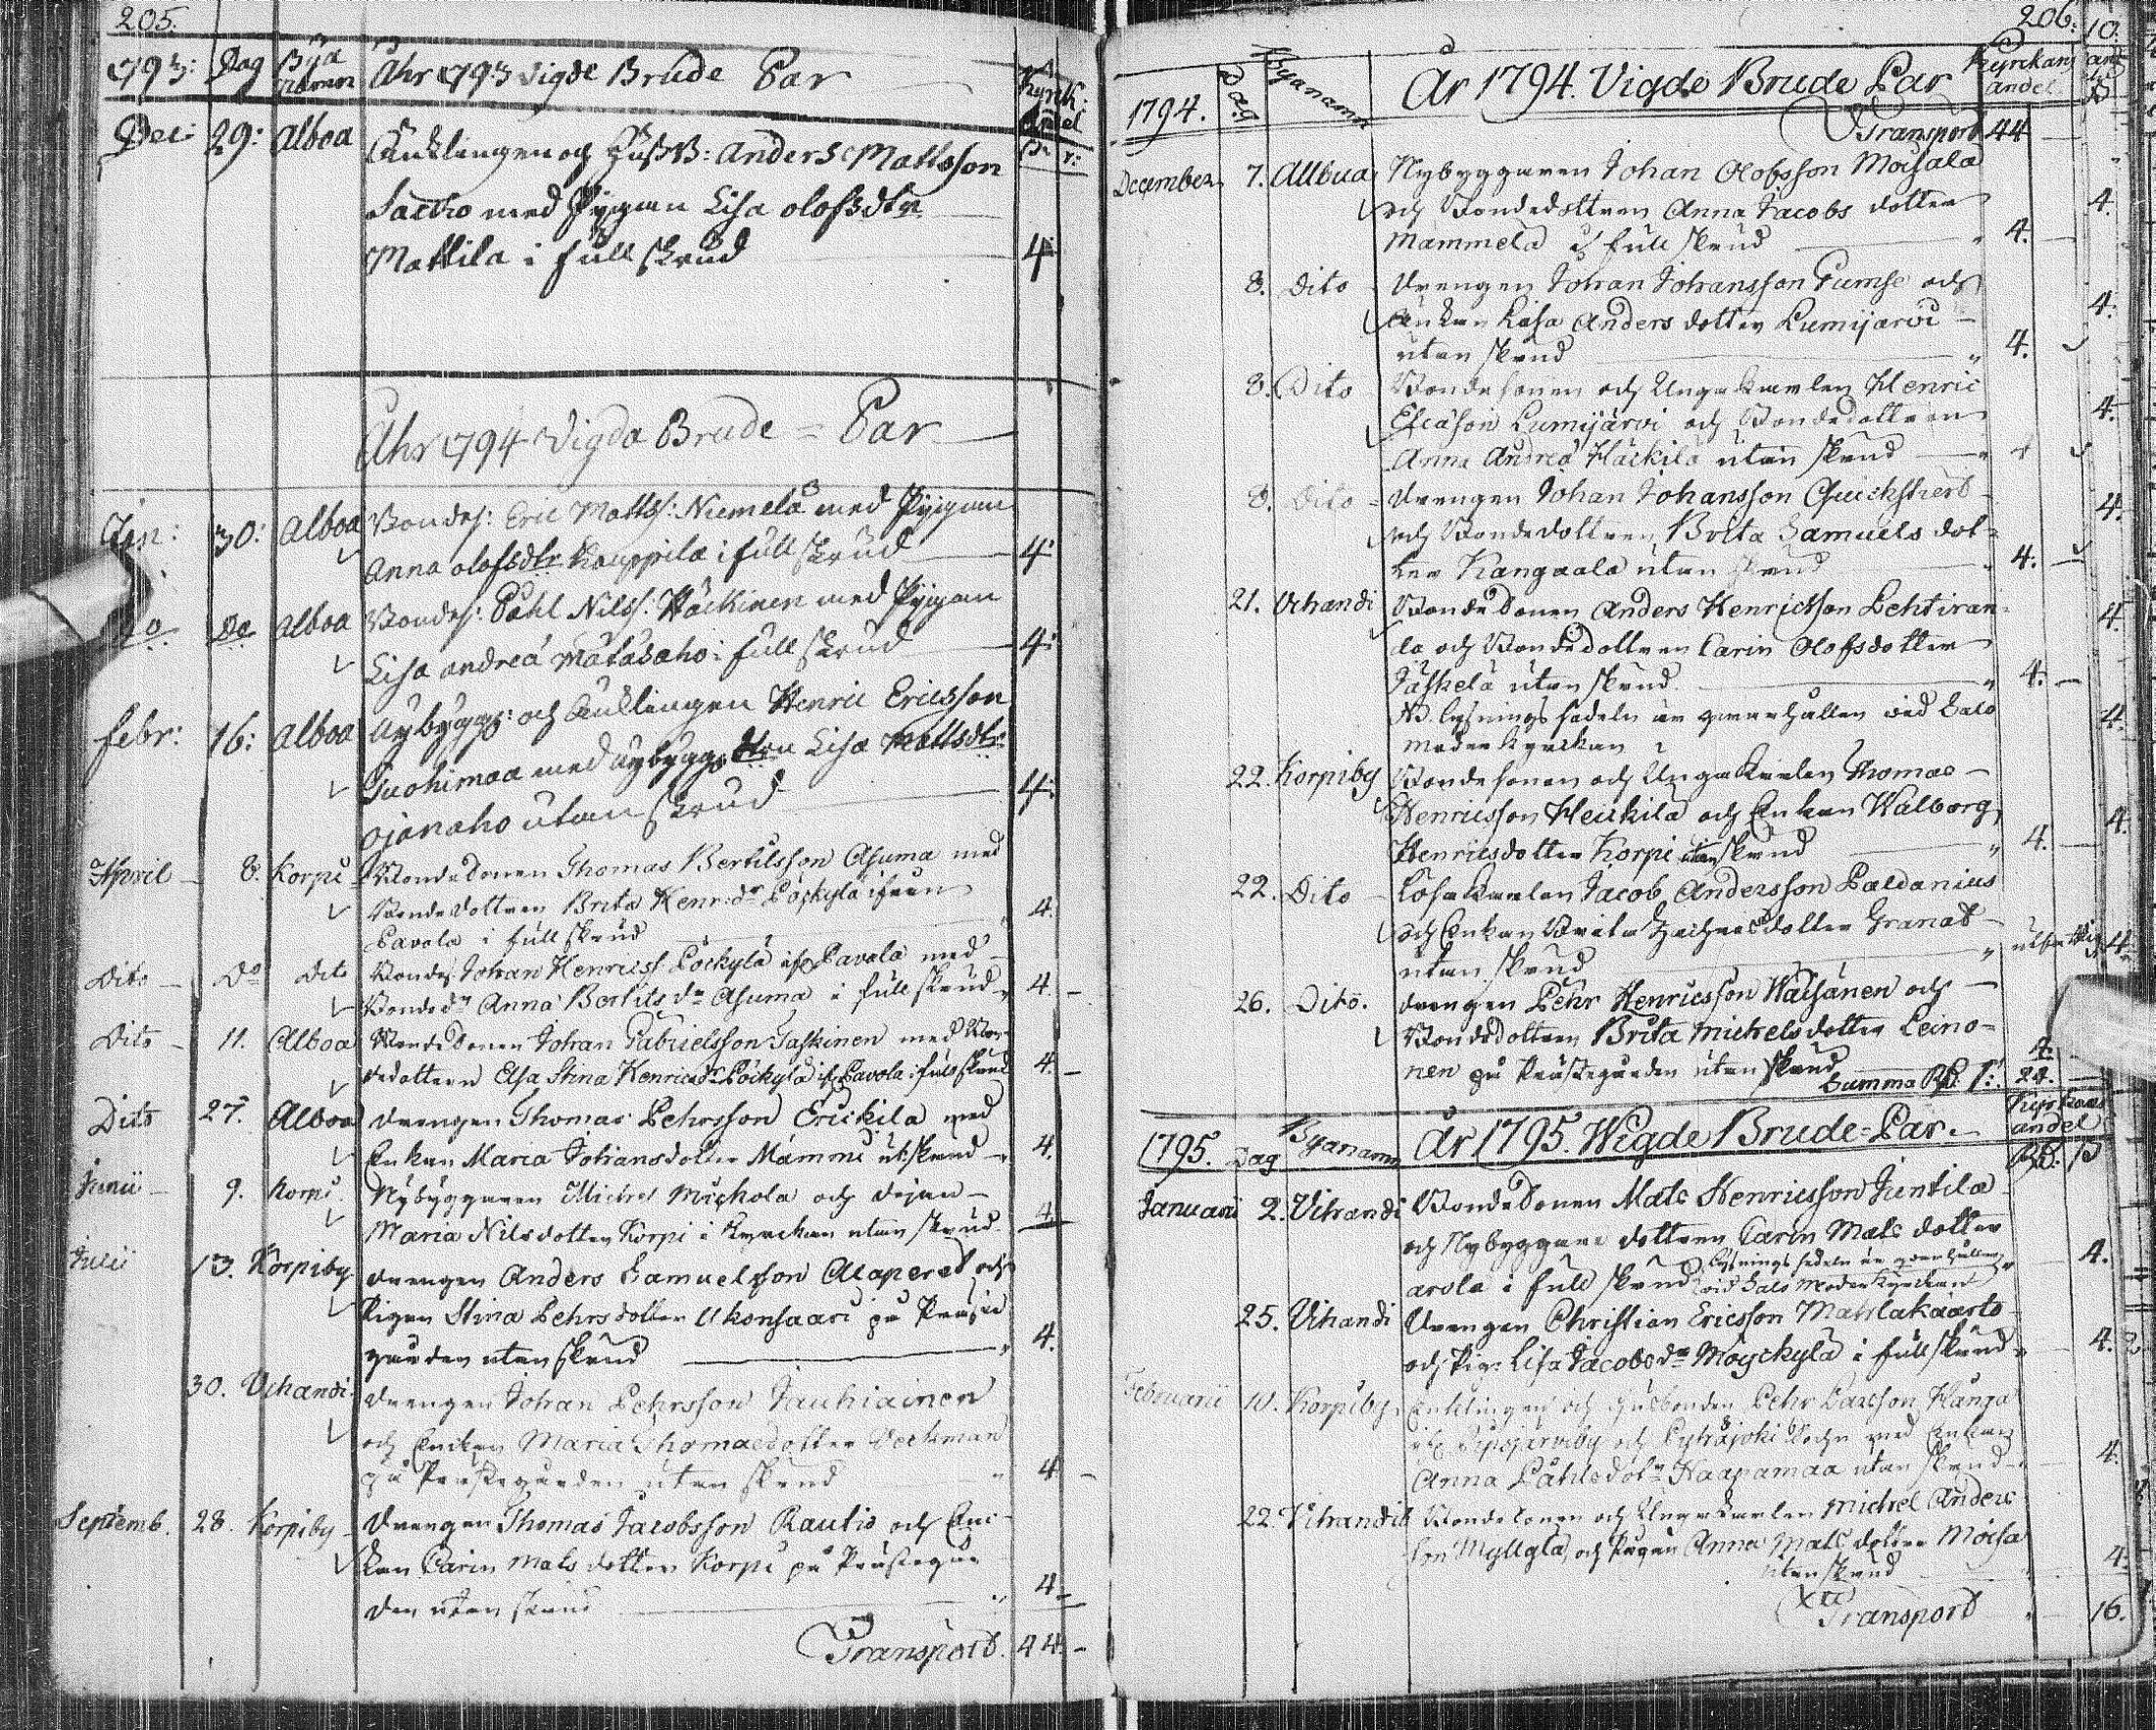 205.
1793: Dag Bÿa namn Åhr 1793 Vigde Brude Par Kyrck: Andel
Dec: 29: Alboa Änklingen och Husb: Anders Mattsson
Saitio med Pijgan Lisa olofsdtr
Mattila i full skrud 4
Åhr 1794 Vigda Brude = Par
Jan: 30: Alboa Bondes: Eric Matts: Niemelä med Pijgan
Anna olofsdtr Kauppila i full skrud 4
Do De Alboa Bondes: Påhl Nilss: Häckinen med Pijgan
Lisa andreæ Matasaho i full skrud 4:
Febr: 16: Alboa Nybÿgg: och Änklingen Henric Ericsson
Juohimaa med nybygg dtrn Lisa Mattsdtr
Ojanaho utan skrud 4:
April 8. Korpi Bonde Sonen Thomas Bertilsson Asuma med
Bonde dottren Brita Henr: dr Pöyskylä ifrån
Pavola i full skrud 4.
Dito Do Dito Bondes Johan Henricss Pöckylä if Pavola med
Bonde dr Anna Bertils dr Asuma i full skrud 4.
Dito 11. Alboa Bonde Sonen Johan Gabrielsson Taskinen med Bon-
dedottren Elsa Stina Henricsdr Pöckylä if Pavola i full skrud 4.
Dito 27. Alboa Drengen Thomas Pehrsson Erickila med
Enkan Maria Johansdotter Mämmi ut skrud 4.
Junii 9. Korpi Nybyggaren Michel Michola och Pigan
Maria Nilsdotter Korpi i Kyrckan utan skrud 4
Julii 13. Korpiby Drengen Anders Samuelsson Alaperet och
Pigan Stina Pehrsdotter Ukonsaari på Präste
gården utan skrud 4.
30. Vihandi Drengen Johan Pehrsson Jauhiainen
och Enckan Maria Thomasdotter Veckman
på Prästegården utan skrud 4
Septemb. 28. Korpiby Drengen Thomas Jacobsson Rautio och Enc-
kan Carin Mats dotter Korpi på Prästegår
den utan skrud 4
Transport. 44.
206.
1794. Dag Byanamn År 1794. Vigde Brude Par Kyrckans andel.
Transport 44
December 7. Allbua Nybyggaren Johan Olofsson Moisala
och Bondedottren Anna Jacobs dotter
Mämmelä i full skrud 4. 4.
8. Dito Drengen Johan Johansson Pumse och
Enkan Lisa Anders dotter Lumijärvi
utan skrud 4. 4.
8. Dito Bonde sonen och Ungekarlen Henric
Esaiason Lumijärvi och Bondedottren
Anna Andreæ Häckilä utan skrud 4 4.
8. Dito Drengen Johan Johansson Quickstrert
och Bondedottren Brita Samuels dot-
ter Kangaala utan skrud 4. 4.
21. Vihandi Bonde Sonen Anders Henricsson Lehtiran-
da och Bondedottren Carin Olofsdotter
Jäskelä utan skrud 4. 4.
NB. Lysnings sedeln är qvarhållen vid Salo
moderkyrckan 4.
22. Korpiby Bonde sonen och Ungekarlen Thomas
Henricsson Heickilä och Enkan Walborg
Henricsdotter Korpi utan skrud 4. 4.
22. Dito Löskarlen Jacob Andersson Paldanius
och Enkan Brita Zachrisdotter Granat
utan skrud 4.
26. Dito. Drengen Pehr Henricsson Wäisänen och
Bondedottren Brita Michelsdotter Leino-
nen på Prästegården utan skrud 4.
Summa Rd: 1: 24.
1795. Dag Byanamn År 1795. Wigde Brude-Par. Kyrkans andel
Januarii 2. Vihandi Bonde Sonen Mats Henricsson Juntila
och Nybyggare dottren Carin Mats dotter
arola i full skrud Lysnings sedeln är qvarhållen
vid Salo Moderkyrckan 4.
25. Vihandi Drengen Christian Ericsson Mahlakaarto
och Pig: Lisa Jacobsdr Möyckylä i full skrud 4.
Februarii 10. Korpiby Encklingen och Husbonden Pehr Larsson Hanga
if Pipsjärviby och Pyhäjoki Sochn med Enkan
Anna Påhlsdotr Haapamaa utan skrud 4.
22. Vihandi Bonde Sonen och Ungekarlen Michel Anders
son Myllylä och Pigan Anna Mats dotter Moisa
utan skrud 4.
Transport 16.